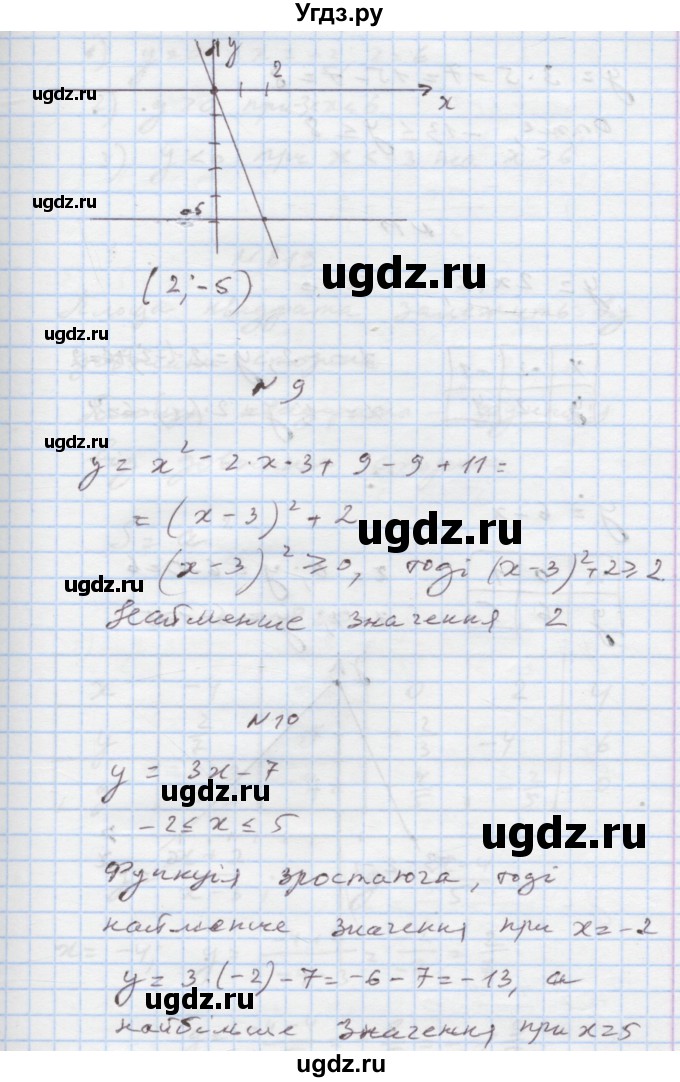 Угдз.ру
y
2
x
ugdz.ru
ugdz.ru
-5
ugdz.ru
(2; -5)
ugdz.ru
N 9
ugdz.ru
y = x² - 2·x·3 + 9 - 9 + 11 =
= (x-3)² + 2
ugdz.ru
ugdz.ru
(x-3)² ≥ 0, тоді (x-3)²+2≥2
Найменше значення 2
N 10
y = 3x - 7
ugdz.ru
-2 ≤ x ≤ 5
ugdz.ru
Функція зростаюча, тоді
найменше значення при x = -2
y = 3·(-2) - 7 = -6 - 7 = -13, а
ugdz.ru
найбільше значення при x=5
ugdz.ru